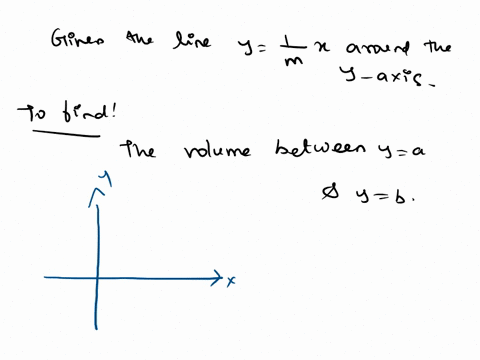 Given the line y = 1/m x around the
y-axis.
To find!
The volume between y=a
& y=b.
y
x